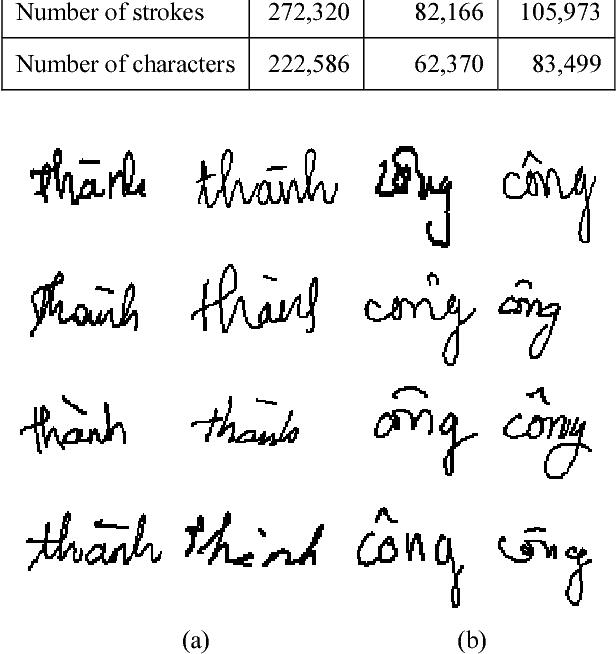 Number of strokes 272,320 82,166 105,973
Number of characters 222,586 62,370 83,499
thành thành công công
thành thành công công
thành thành công công
thành thành công công
(a) (b)